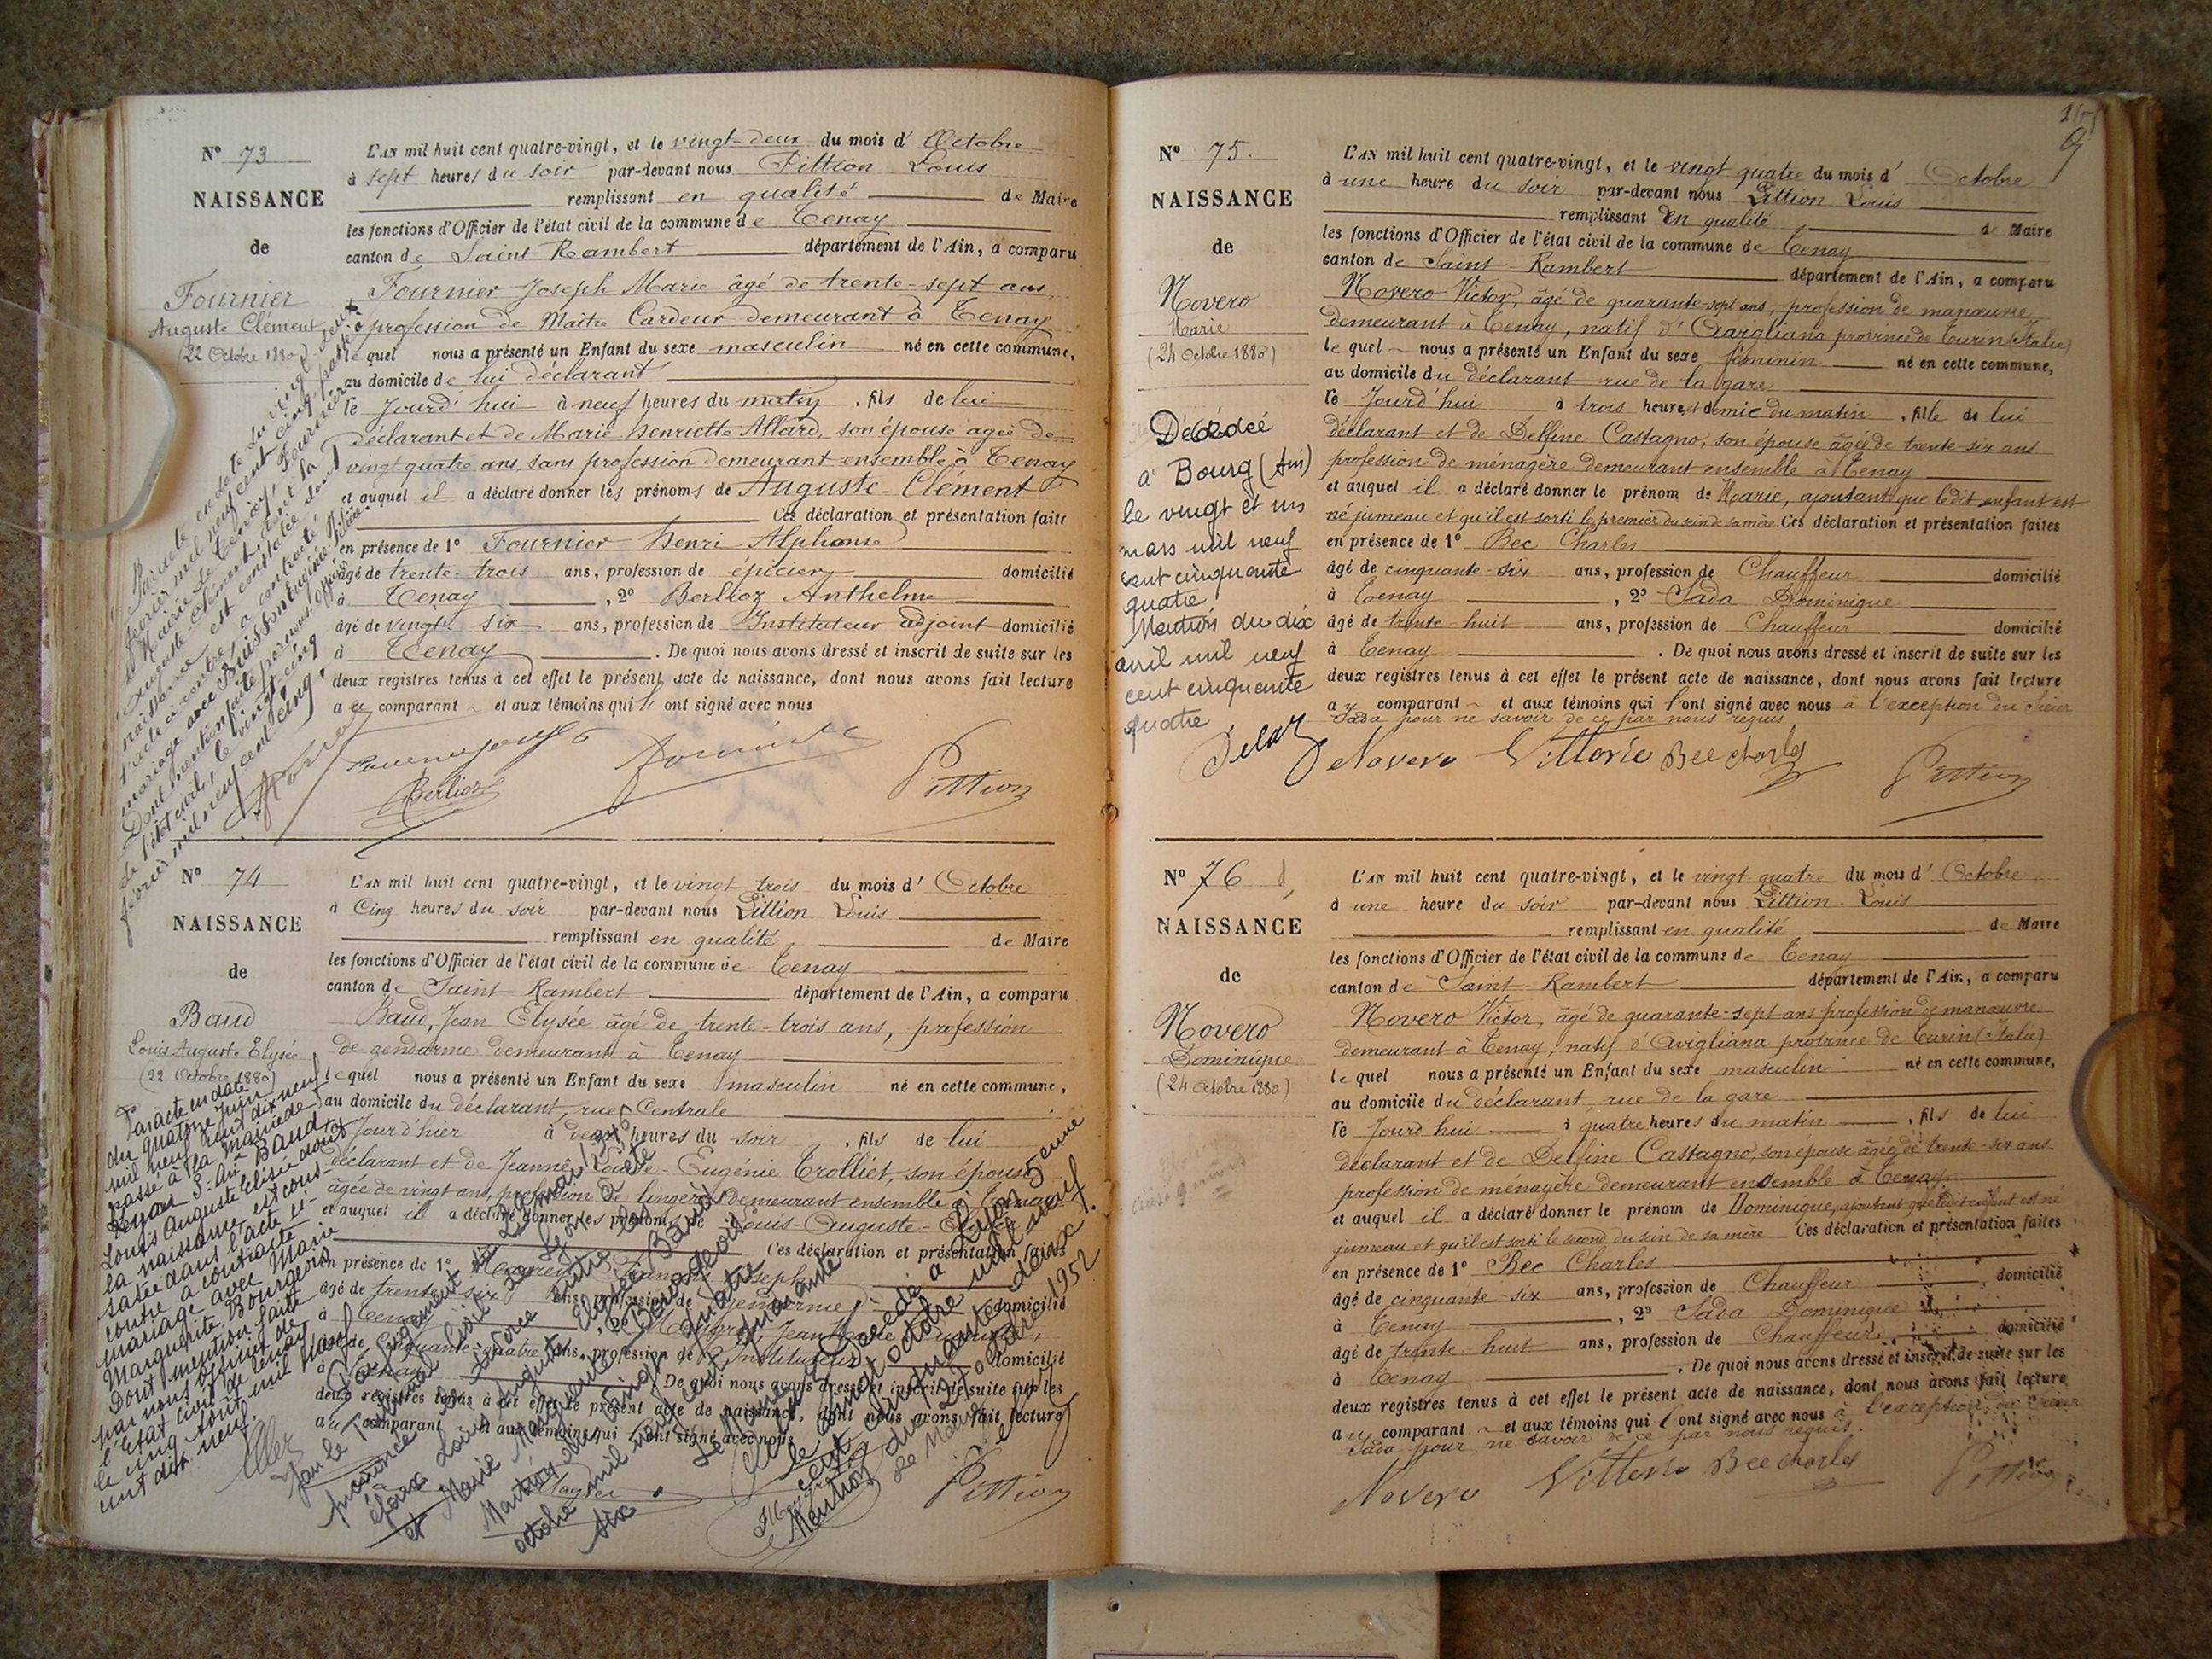 N° 73
NAISSANCE
de
Fournier
Auguste Clément
(22 Octobre 1880)
L'AN mil huit cent quatre-vingt, et le vingt-deux du mois d' Octobre
à sept heures du soir par-devant nous Pittion Louis
remplissant en qualité de Maire
les fonctions d'Officier de l'état civil de la commune de Tenay
canton de Saint Rambert département de l'Ain, a comparu
Fournier Joseph Marie âgé de trente-sept ans,
profession de Maître Cardeur demeurant à Tenay
le quel nous a présenté un Enfant du sexe masculin né en cette commune,
au domicile de lui déclarant
le Jourd'hui à neuf heures du matin, fils de lui
déclarant et de Marie Henriette Allard, son épouse agée de
vingt quatre ans, sans profession demeurant ensemble à Tenay
et auquel il a déclaré donner les prénoms de Auguste-Clément
Ces déclaration et présentation faites
en présence de 1° Fournier Henri Alphonse
âgé de trente-trois ans, profession de épicier domicilié
à Tenay, 2° Berlioz Anthelme
âgé de vingt-six ans, profession de Instituteur adjoint domicilié
à Tenay. De quoi nous avons dressé et inscrit de suite sur les
deux registres tenus à cet effet le présent acte de naissance, dont nous avons fait lecture
au comparant et aux témoins qui l'ont signé avec nous
Berlioz
Pittion
Par acte en date du vingt-deux
février mil neuf cent cinq, passé à
la Mairie de Tenay, Fournier
Auguste Clément, dont la
naissance est constatée dans
l'acte ci-contre, a contracté
mariage avec Buisson Eugénie
Dont mention faite par nous officier
de l'état civil, le vingt-cinq
février mil neuf cent cinq.
N° 74
NAISSANCE
de
Baud
Louis Auguste Elysée
(22 Octobre 1880)
L'AN mil huit cent quatre-vingt, et le vingt trois du mois d' Octobre
à Cinq heures du soir par-devant nous Pittion Louis
remplissant en qualité de Maire
les fonctions d'Officier de l'état civil de la commune de Tenay
canton de Saint Rambert département de l'Ain, a comparu
Baud, Jean Elysée âgé de trente-trois ans, profession
de gendarme demeurant à Tenay
le quel nous a présenté un Enfant du sexe masculin né en cette commune,
au domicile du déclarant, rue Centrale
Jourd'hier à deux heures du soir, fils de lui
déclarant et de Jeanne Louise-Eugénie Trolliet, son épouse
âgée de vingt ans, profession de lingère demeurant ensemble à Tenay
et auquel il a déclaré donner les prénoms de Louis-Auguste-Elysée
Ces déclaration et présentation faites
en présence de 1° François Joseph
âgé de trente six ans, profession de Gendarme domicilié
à Tenay, 2°
âgé de Cinquante-quatre ans, profession de Instituteur domicilié
à Tenay. De quoi nous avons dressé et inscrit de suite sur les
deux registres tenus à cet effet le présent acte de naissance, dont nous avons fait lecture
au comparant et aux témoins qui l'ont signé avec nous
Pittion
Par acte en date
du quatorze Juin
mil neuf cent dix neuf
passé à la Mairie de
Lyon 5e Arr. Baud
Louis Auguste Elisée dont
la naissance est cons-
tatée dans l'acte ci-
contre a contracté
mariage avec Marie
Marguerite Bourgeois
Dont mention faite
par nous officier de
l'Etat Civil de Tenay
le cinq Août mil neuf
cent dix neuf.
Par jugement du 22 mai 1946
le Tribunal Civil de Lyon a été
prononcé le divorce entre les
époux Louis Auguste Elysée Baud
et Marie Marguerite Bourgeois
Mention du vingt quatre
octobre mil neuf cent quarante
six
Le Maire
Décédé à Lyon 5eme
le vingt octobre mil neuf
cent cinquante deux.
Mention du 27 octobre 1952
Le Maire
N° 75.
NAISSANCE
de
Novero
Marie
(24 Octobre 1880)
L'AN mil huit cent quatre-vingt, et le vingt quatre du mois d' Octobre
à une heure du soir par-devant nous Pittion Louis
remplissant en qualité de Maire
les fonctions d'Officier de l'état civil de la commune de Tenay
canton de Saint-Rambert département de l'Ain, a comparu
Novero Victor, âgé de quarante-sept ans, profession de manœuvre
demeurant à Tenay, natif d'Avigliana province de Turin (Italie)
le quel nous a présenté un Enfant du sexe féminin né en cette commune,
au domicile du déclarant rue de la gare
le Jourd'hui à trois heures et demie du matin, fille de lui
déclarant et de Delfine Castagno, son épouse âgée de trente-six ans
profession de ménagère demeurant ensemble à Tenay
et auquel il a déclaré donner le prénom de Marie, ajoutant que ledit enfant est
né jumeau et qu'il est sorti le premier du sein de sa mère. Ces déclaration et présentation faites
en présence de 1° Bec Charles
âgé de cinquante-six ans, profession de Chauffeur domicilié
à Tenay, 2° Sada Dominique
âgé de trente-huit ans, profession de Chauffeur domicilié
à Tenay. De quoi nous avons dressé et inscrit de suite sur les
deux registres tenus à cet effet le présent acte de naissance, dont nous avons fait lecture
au comparant et aux témoins qui l'ont signé avec nous à l'exception du Sieur
Sada pour ne savoir de ce par nous requis
Novero Vittorio Bec Charles
Pittion
Décédée
à Bourg (Ain)
le vingt et un
mars mil neuf
cent cinquante
quatre
Mention du dix
avril mil neuf
cent cinquante
quatre
N° 76
NAISSANCE
de
Novero
Dominique
(24 Octobre 1880)
L'AN mil huit cent quatre-vingt, et le vingt quatre du mois d' Octobre
à une heure du soir par-devant nous Pittion Louis
remplissant en qualité de Maire
les fonctions d'Officier de l'état civil de la commune de Tenay
canton de Saint Rambert département de l'Ain, a comparu
Novero Victor, âgé de quarante-sept ans profession de manœuvre
demeurant à Tenay, natif d'Avigliana province de Turin (Italie)
le quel nous a présenté un Enfant du sexe masculin né en cette commune,
au domicile du déclarant, rue de la gare
le Jourd'hui à quatre heures du matin, fils de lui
déclarant et de Delfine Castagno, son épouse âgée de trente-six ans
profession de ménagère demeurant ensemble à Tenay
et auquel il a déclaré donner le prénom de Dominique, ajoutant que ledit enfant est né
jumeau et qu'il est sorti le second du sein de sa mère Ces déclaration et présentation faites
en présence de 1° Bec Charles
âgé de cinquante-six ans, profession de Chauffeur, domicilié
à Tenay, 2° Sada Dominique
âgé de trente-huit ans, profession de Chauffeur domicilié
à Tenay. De quoi nous avons dressé et inscrit de suite sur les
deux registres tenus à cet effet le présent acte de naissance, dont nous avons fait lecture
au comparant et aux témoins qui l'ont signé avec nous à l'exception du Sieur
Sada pour ne savoir de ce par nous requis.
Novero Vittorio Bec Charles
Pittion